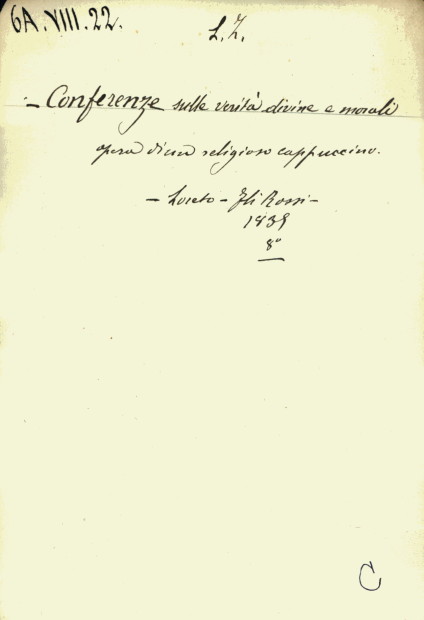 6A.VIII.22.
L. Z.
- Conferenze sulle verità divine e morali
opera di un religioso cappuccino.
- Loreto - Fli Rossi -
1839
8°
C